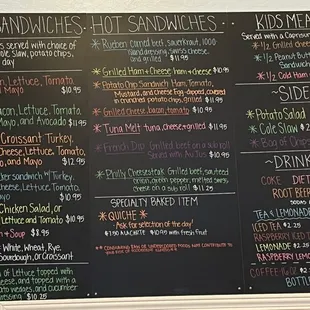 SANDWICHES
served with choice of
Slaw, potato chips,
day
Lettuce, Tomato,
and Mayo
Bacon, Lettuce, Tomato,
Mayo, and Avocado $11.95
Croissant Turkey,
Cheese, Lettuce, Tomato,
and Mayo $12.95
sandwich w/ Turkey,
Cheese, Lettuce, Tomato,
and Mayo $10.95
Chicken Salad, or
Lettuce and Tomato $10.95
+ Soup $8.95
White, Wheat, Rye,
Sourdough, or Croissant
of Lettuce topped with
Cheese, and topped with a
Tomato wedges, and cucumber
dressing $10.25
HOT SANDWICHES
* Rueben Corned beef, sauerkraut, 1000
island dressing, swiss cheese,
and grilled $11.95
* Grilled Ham + Cheese ham + cheese $10.95
* Potato Chip Sandwich Ham, Tomato,
Mustard, and cheese Egg-dipped, covered
in crunched potato chips, grilled $11.95
* Grilled Cheese, bacon, tomato $10.95
* Tuna Melt tuna, cheese + grilled $11.95
* French Dip Grilled beef on a sub roll
Served with Au Jus $10.95
* Philly Cheesesteak Grilled beef, sauteed
onion, green pepper, melted swiss
cheese on a sub roll $11.25
SPECIALTY BAKED ITEM
*QUICHE*
Ask for selection of the day!
$7.50 ALA CARTE $10.95 with fresh fruit
KIDS MEA
Served with a Caprisun
* 1/2 Grilled Cheese
* 1/2 Peanut Butter
Sandwich
* 1/2 Cold Ham
~SIDE
*Potato Salad
*Cole Slaw $2
*Bag of Chips
~DRINK
COKE DIET
ROOT BEER
TEA & LEMONADE
ICED TEA $2.25
RASPBERRY ICED
LEMONADE $2.25
RASPBERRY LEM
COFFEE 16oz $2
BOTTL